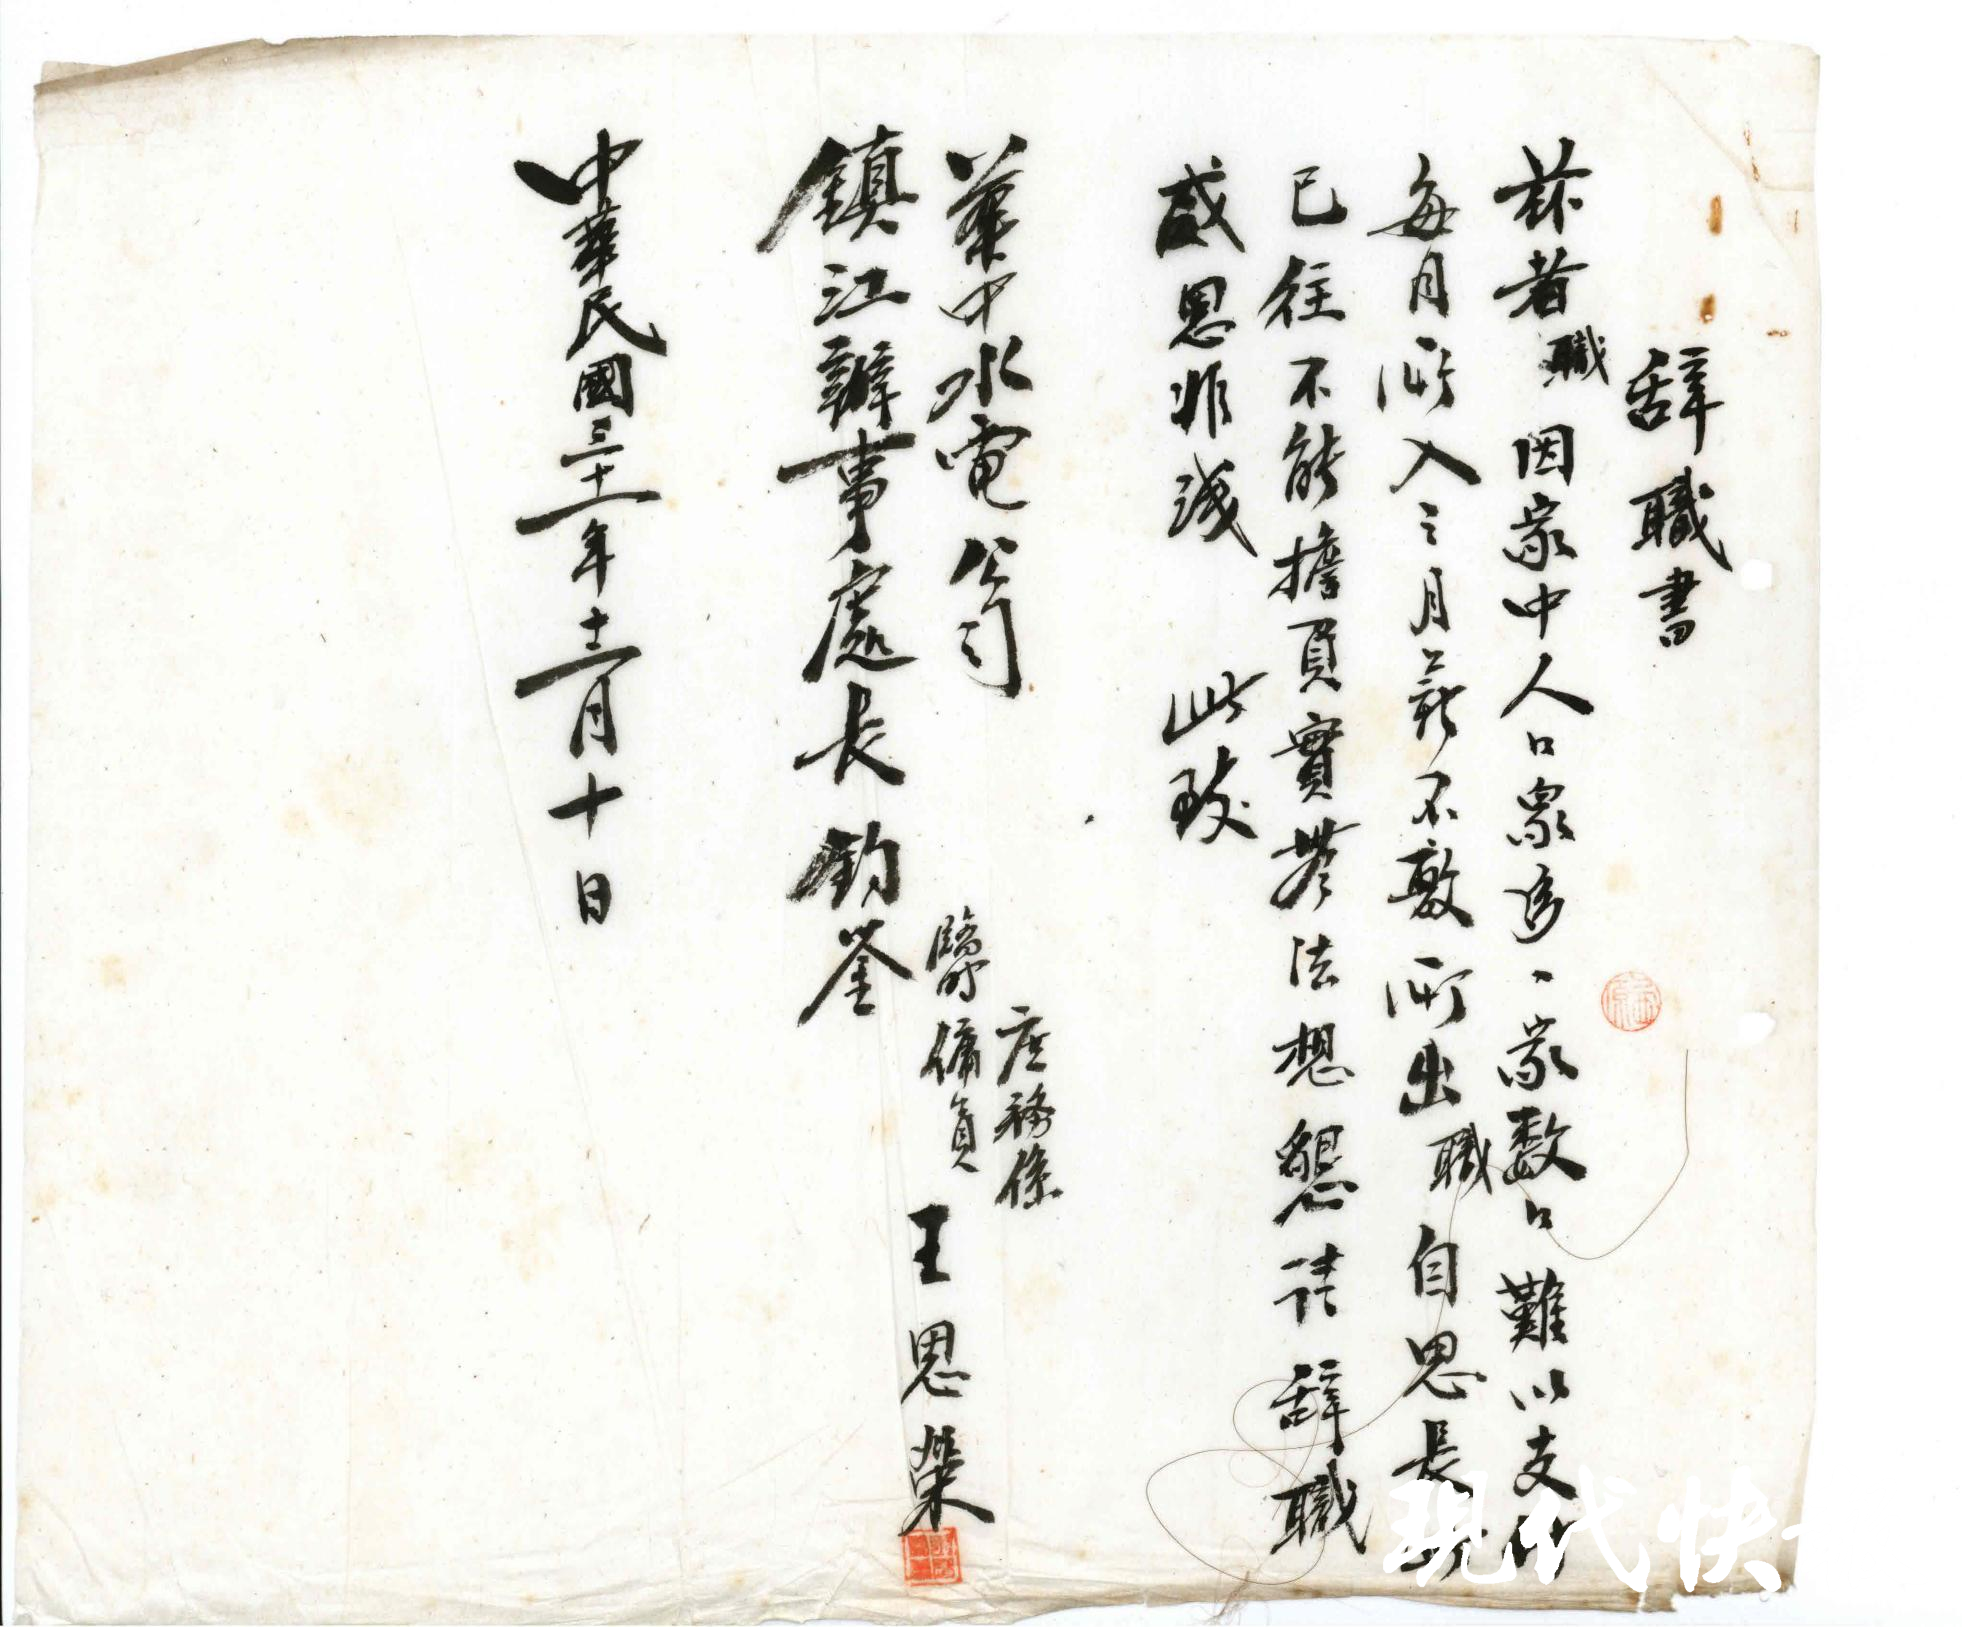 辞職書
茲者職因家中人口衆多、家数口難以支付
每月所入之月薪不敷所出職自思長此
已往不能擔負實無法想懇請辞職
感恩非淺　此致
華中水電公司
鎮江辦事處長　鈞鉴
庶務係
臨時傭員　王恩榮
中華民國三十一年十二月十日
現代快